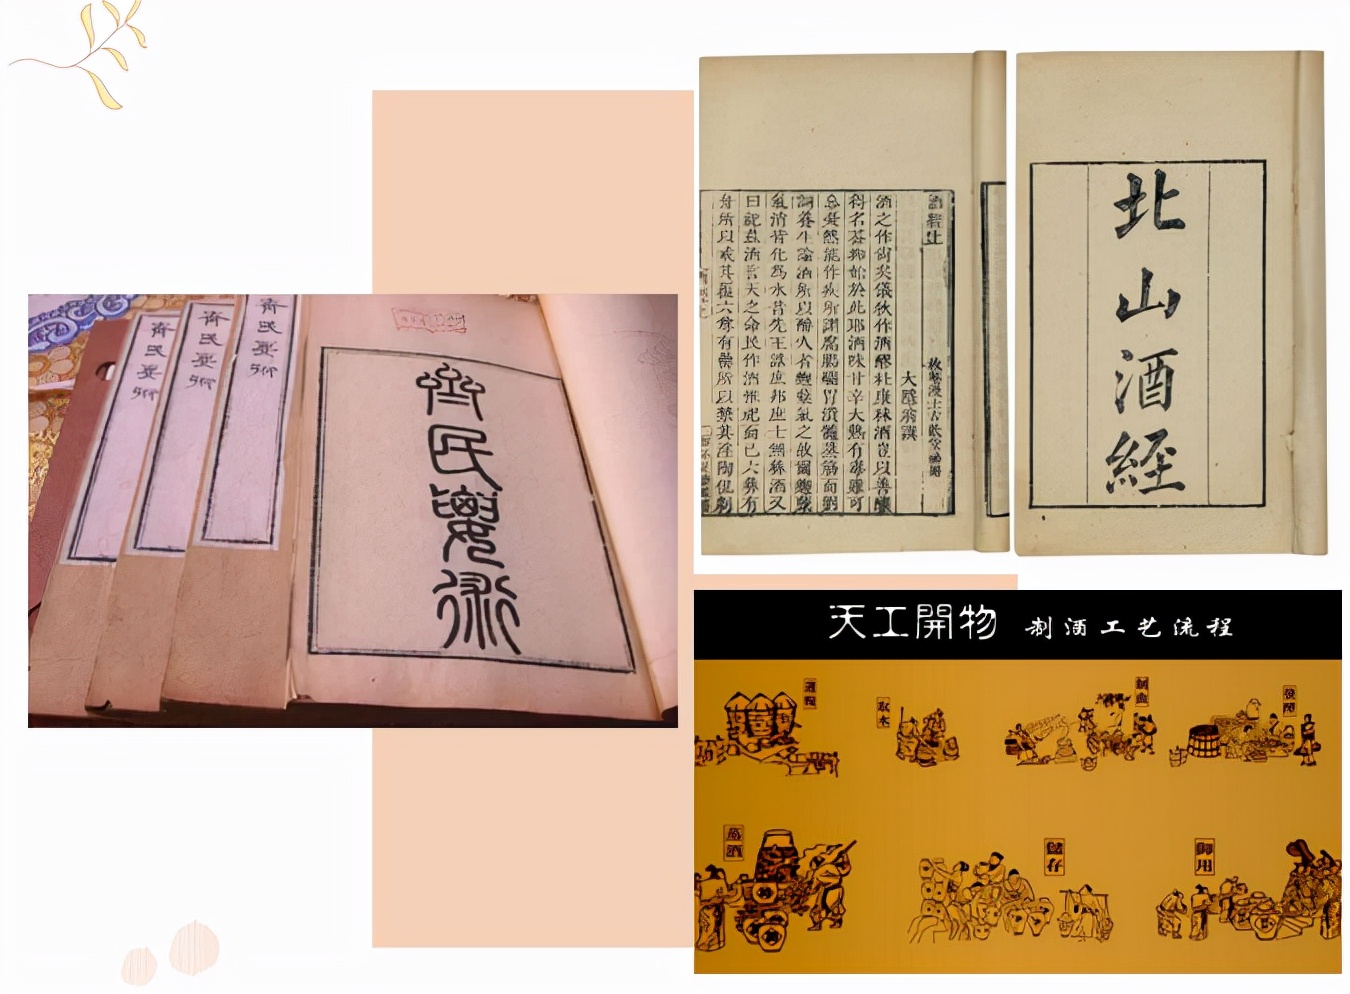 齊民要術
齊民要術
齊民要術
齊民要術
酒經上
枚菴漫士古歡堂祕冊
大隱翁撰
酒之作尚矣儀狄作酒醪杜康秫酒豈以善釀
得名蓋抑始於此耶酒味甘辛大熱有毒雖可
忘憂然能作疾所謂腐腸爛胃潰髓蒸筋而劉
詞養生論酒所以醉人者麴蘗氣之故爾麴蘗
氣消皆化爲水昔先王誥庶邦庶士無彝酒又
曰祀茲酒言天之命民作酒惟祀而已六彝有
舟所以戒其覆六尊有罍所以禁其淫陶侃劇
北山酒經
天工開物 制酒工艺流程
取水
發酵
蒸酒
儲存